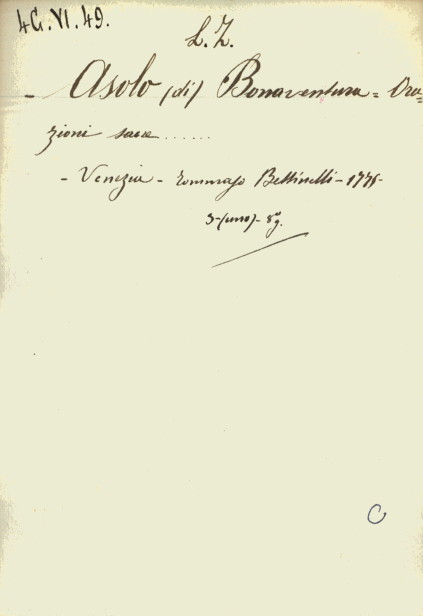 4G.VI.49.
L.Z.
- Asolo (di) Bonaventura = Ora=
zioni sacre ......
- Venezia - Tommaso Bettinelli - 1775 -
5 - (uno) - 8º.
C